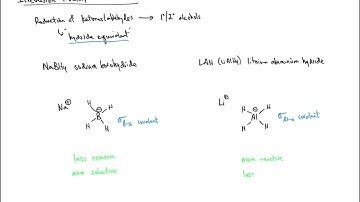 Reduction of ketones/aldehydes → 1°/2° alcohols
"hydride equivalent"
NaBH4 sodium borohydride
LAH (LiAlH4) lithium aluminium hydride
Na⊕
H
H
⊖
B
H
H
σB-H covalent
Li⊕
H
H
⊖
Al
H
H
σAl-H covalent
less reactive
more selective
more reactive
less